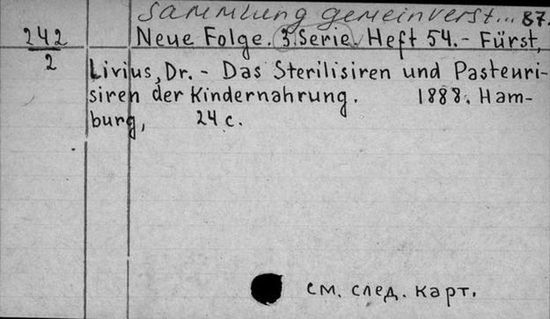 Sammlung gemeinverst... 87.
242
2
Neue Folge. 3.Serie. Heft 54.- Fürst,
Livius, Dr. - Das Sterilisiren und Pasteuri-
siren der Kindernahrung. 1888. Ham-
burg, 24 c.
см. след. карт.